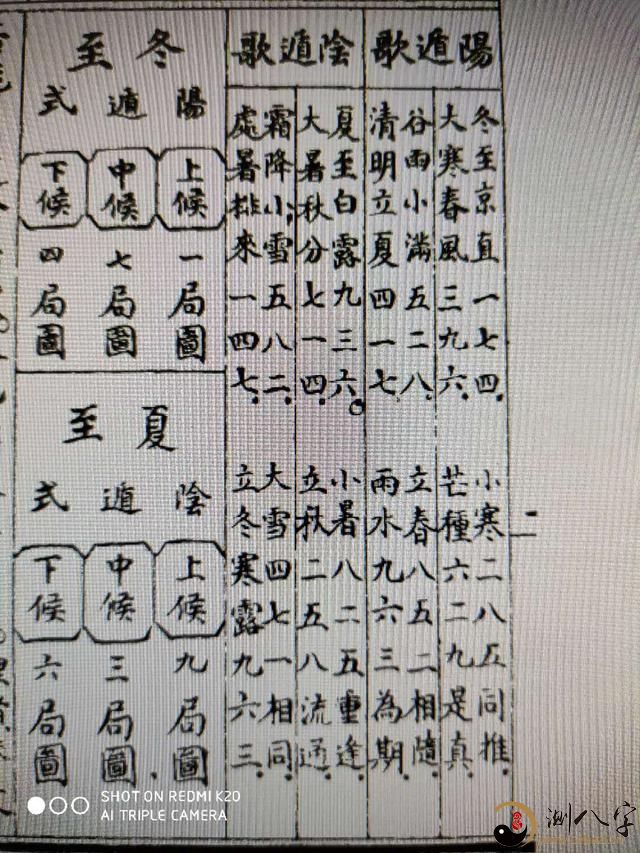 陽遁歌
冬至京直一七四 小寒二八五同推
大寒春風三九六 芒種六二九是真
谷雨小滿五二八 立春八五二相隨
清明立夏四一七 雨水九六三為期
陰遁歌
夏至白露九三六 小暑八二五重逢
大暑秋分七一四 立秋二五八流通
霜降小雪五八二 大雪四七一相同
處暑排來一四七 立冬寒露九六三
冬至
陽遁式
上候 一局圖
中候 七局圖
下候 四局圖
夏至
陰遁式
上候 九局圖
中候 三局圖
下候 六局圖
SHOT ON REDMI K20
AI TRIPLE CAMERA
測八字